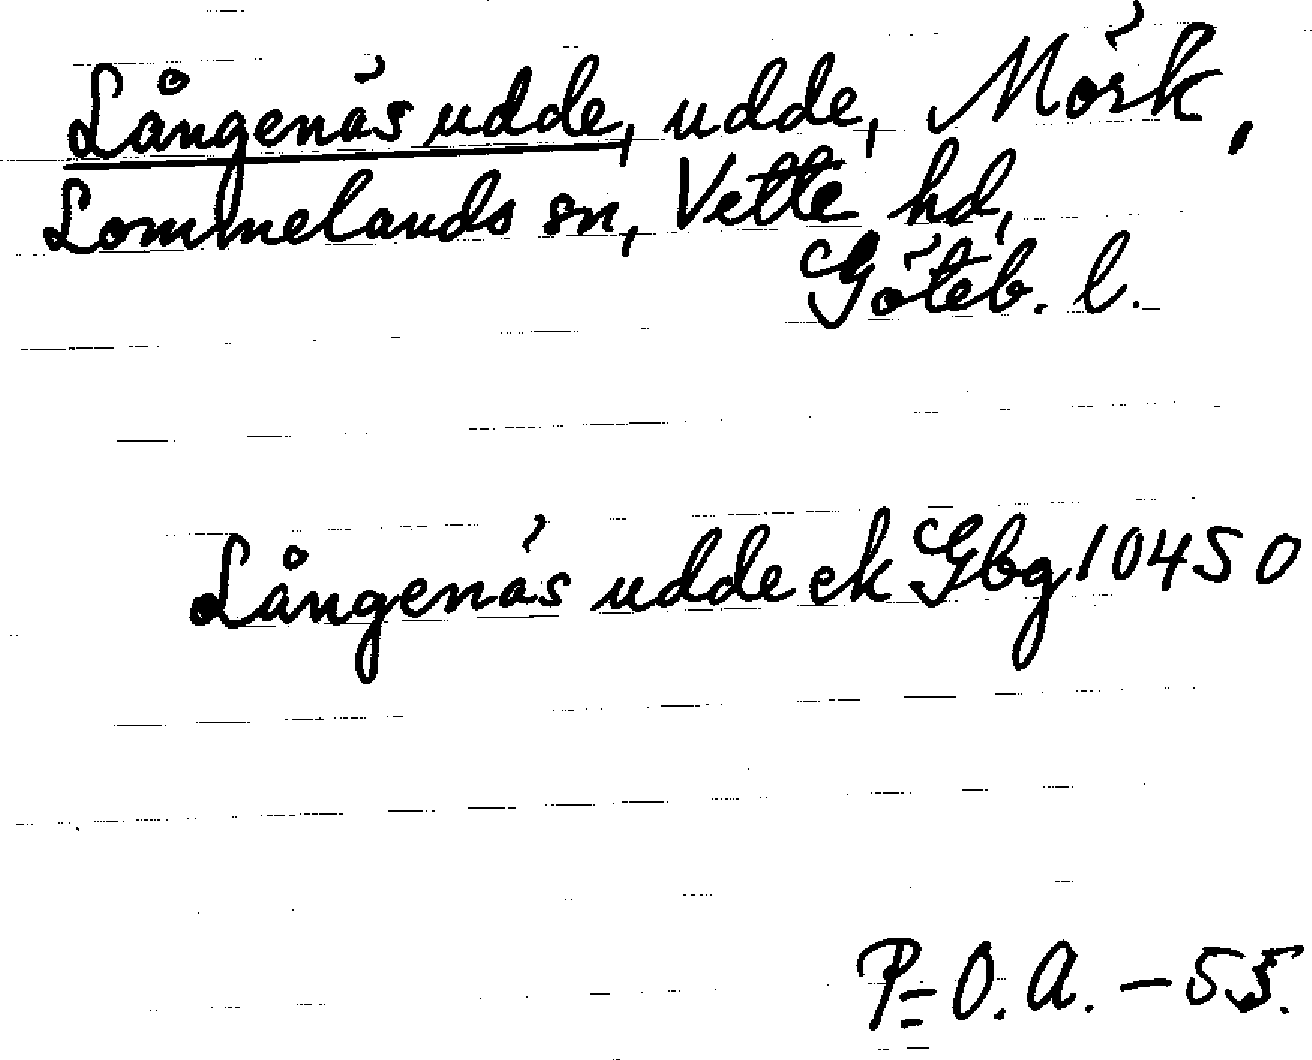 Långenäs udde, udde, Mörk,
Lommelands sn, Vette hd,
Göteb. l.
Långenäs udde ek Gbg 10450
P=O.A. - 55.